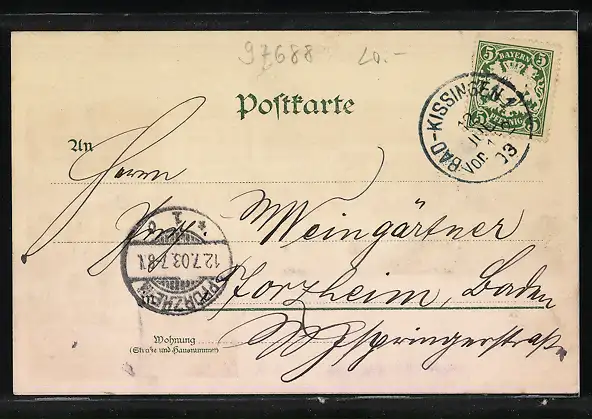 97688 20.-
5 BAYERN 5
5 PFENNIG 5
BAD-KISSINGEN 1
12 JUL
Vor.
03
Postkarte
An
Herrn
Weingärtner
Pforzheim, Baden
PFORZHEIM
12.7.03.7-8V.
1
Wohnung
(Straße und Hausnummer)